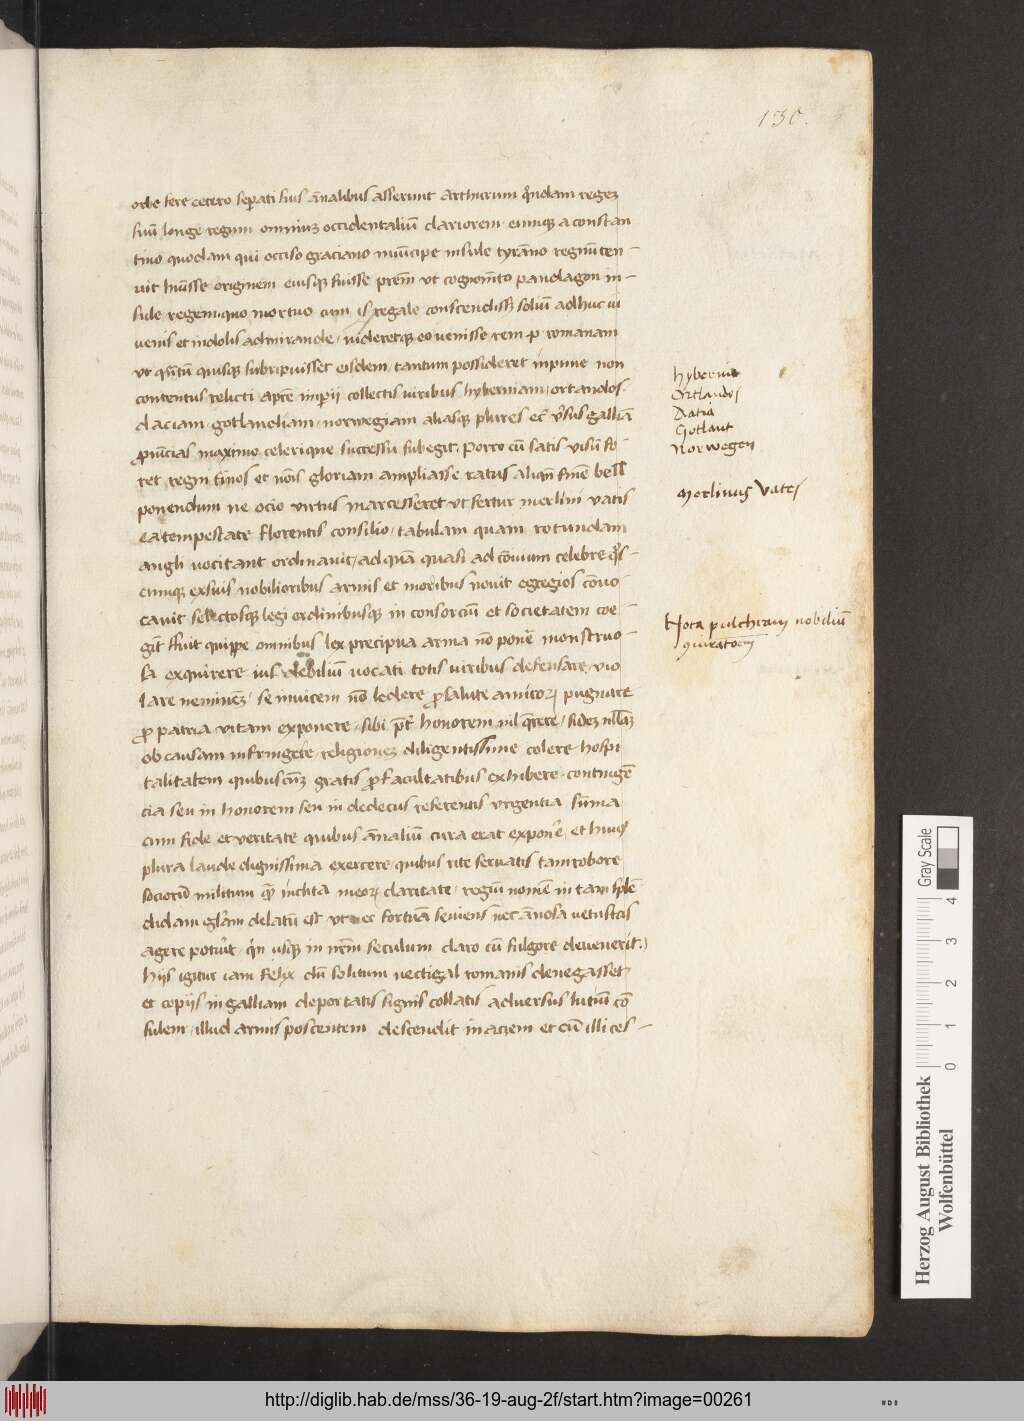 130.
orbe fere cetero sepati suis ānalibus asserunt Arthurum q̄ndam regeꝫ
suū longe regum omniuꝫ occidentaliū clariorem eumqꝫ a constan
tino quodam qui occiso graciano municipe insule tyrāno regnū ten—
uit hūisse originem eiusqꝫ fuisse prēm ut cognoīto pandagon in—
sule regem: quo mortuo cum is regale conscendissꝫ soliū adhuc iu
uenis et indolis admirande, uideretqꝫ eo uenisse rem p̄ romanam
ut qn̄tū quisqꝫ subripuisset eisdem, tantum possideret inpune non
contentus relicti a prē impij collectis uiribus hyberniam, ortandos.
daciam, gotlandiam, norwegiam aliasqꝫ plures ec̄ ūsus galliā
ꝓuīcias maximo celerique successu subegit. Porro cū satis uisū fo—
ret regni finos et nōis gloriam ampliasse ratus aliqn̄ finē bell
ponendum ne ocio uirtus marcesseret ut fertur merlini uatis
ea tempestate florentis consilio, tabulam quam rotundam
angli uocitant ordinauit, ad quā quasi ad cōuiuium celebre q̄s—
cumqꝫ ex suis nobilioribus armis et moribus nouit egregios cōuo—
cauit selectosqꝫ legi ordinibusqꝫ in consorciū et societatem coe—
git Fuit quippe omnibus lex precipua arma nō ponē monstruo—
sa exquirere ius debiliū uocati totis uiribus defensare, uio
lare nemineꝫ, se inuicem nō ledere ꝓ salute amicorꝫ pugnare
ꝓ patria uitam exponere, sibi p̄ter honorem nil q̄rere, fideꝫ nullaꝫ
ob causam infringere, religioneꝫ diligentissime colere hospi
talitatem quibuscūꝫ gratis ꝓ facultatibus exhibere, contingē
cia seu in honorem seu in dedecus referentis urgentia sūma
cum fide et ueritate quibus ānaliū cura erat exponē, et huius
plura laude dignissima exercere, quibus rite seruatis tam robore
sociorū militum qꝫ inclita meorꝫ claritate, regiū nomē in tam splē
didam glām delatū est ut nec fortuā seuiens nec ānosa uetustas
agere potuīt, qn̄ usqꝫ in nr̄m seculum claro cū fulgore deuenerit.
Hijs igitur iam felix dū solitum uectigal romanis denegasset,
et copijs in galliam deportatis signis collatis aduersus lutiū cō
sulem, illud armis poscentem descendit in aciem et cū illi ces—
Hybernia
Ortlandos
Datia
Gotlant
Norwegen
Merlinus Vates
Nota pulchram nobiliū
9iuratōem
Herzog August Bibliothek
Wolfenbüttel
0 1 2 3 4
Gray Scale
http://diglib.hab.de/mss/36-19-aug-2f/start.htm?image=00261